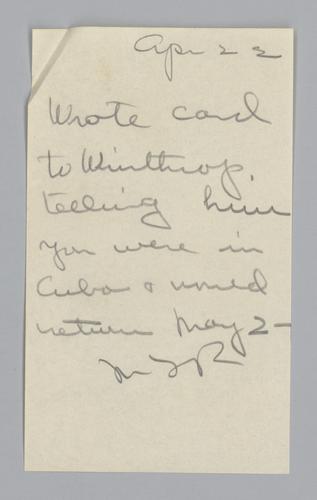 Apr 22
Wrote card
to Winthrop,
telling him
you were in
Cuba & would
return May 2-